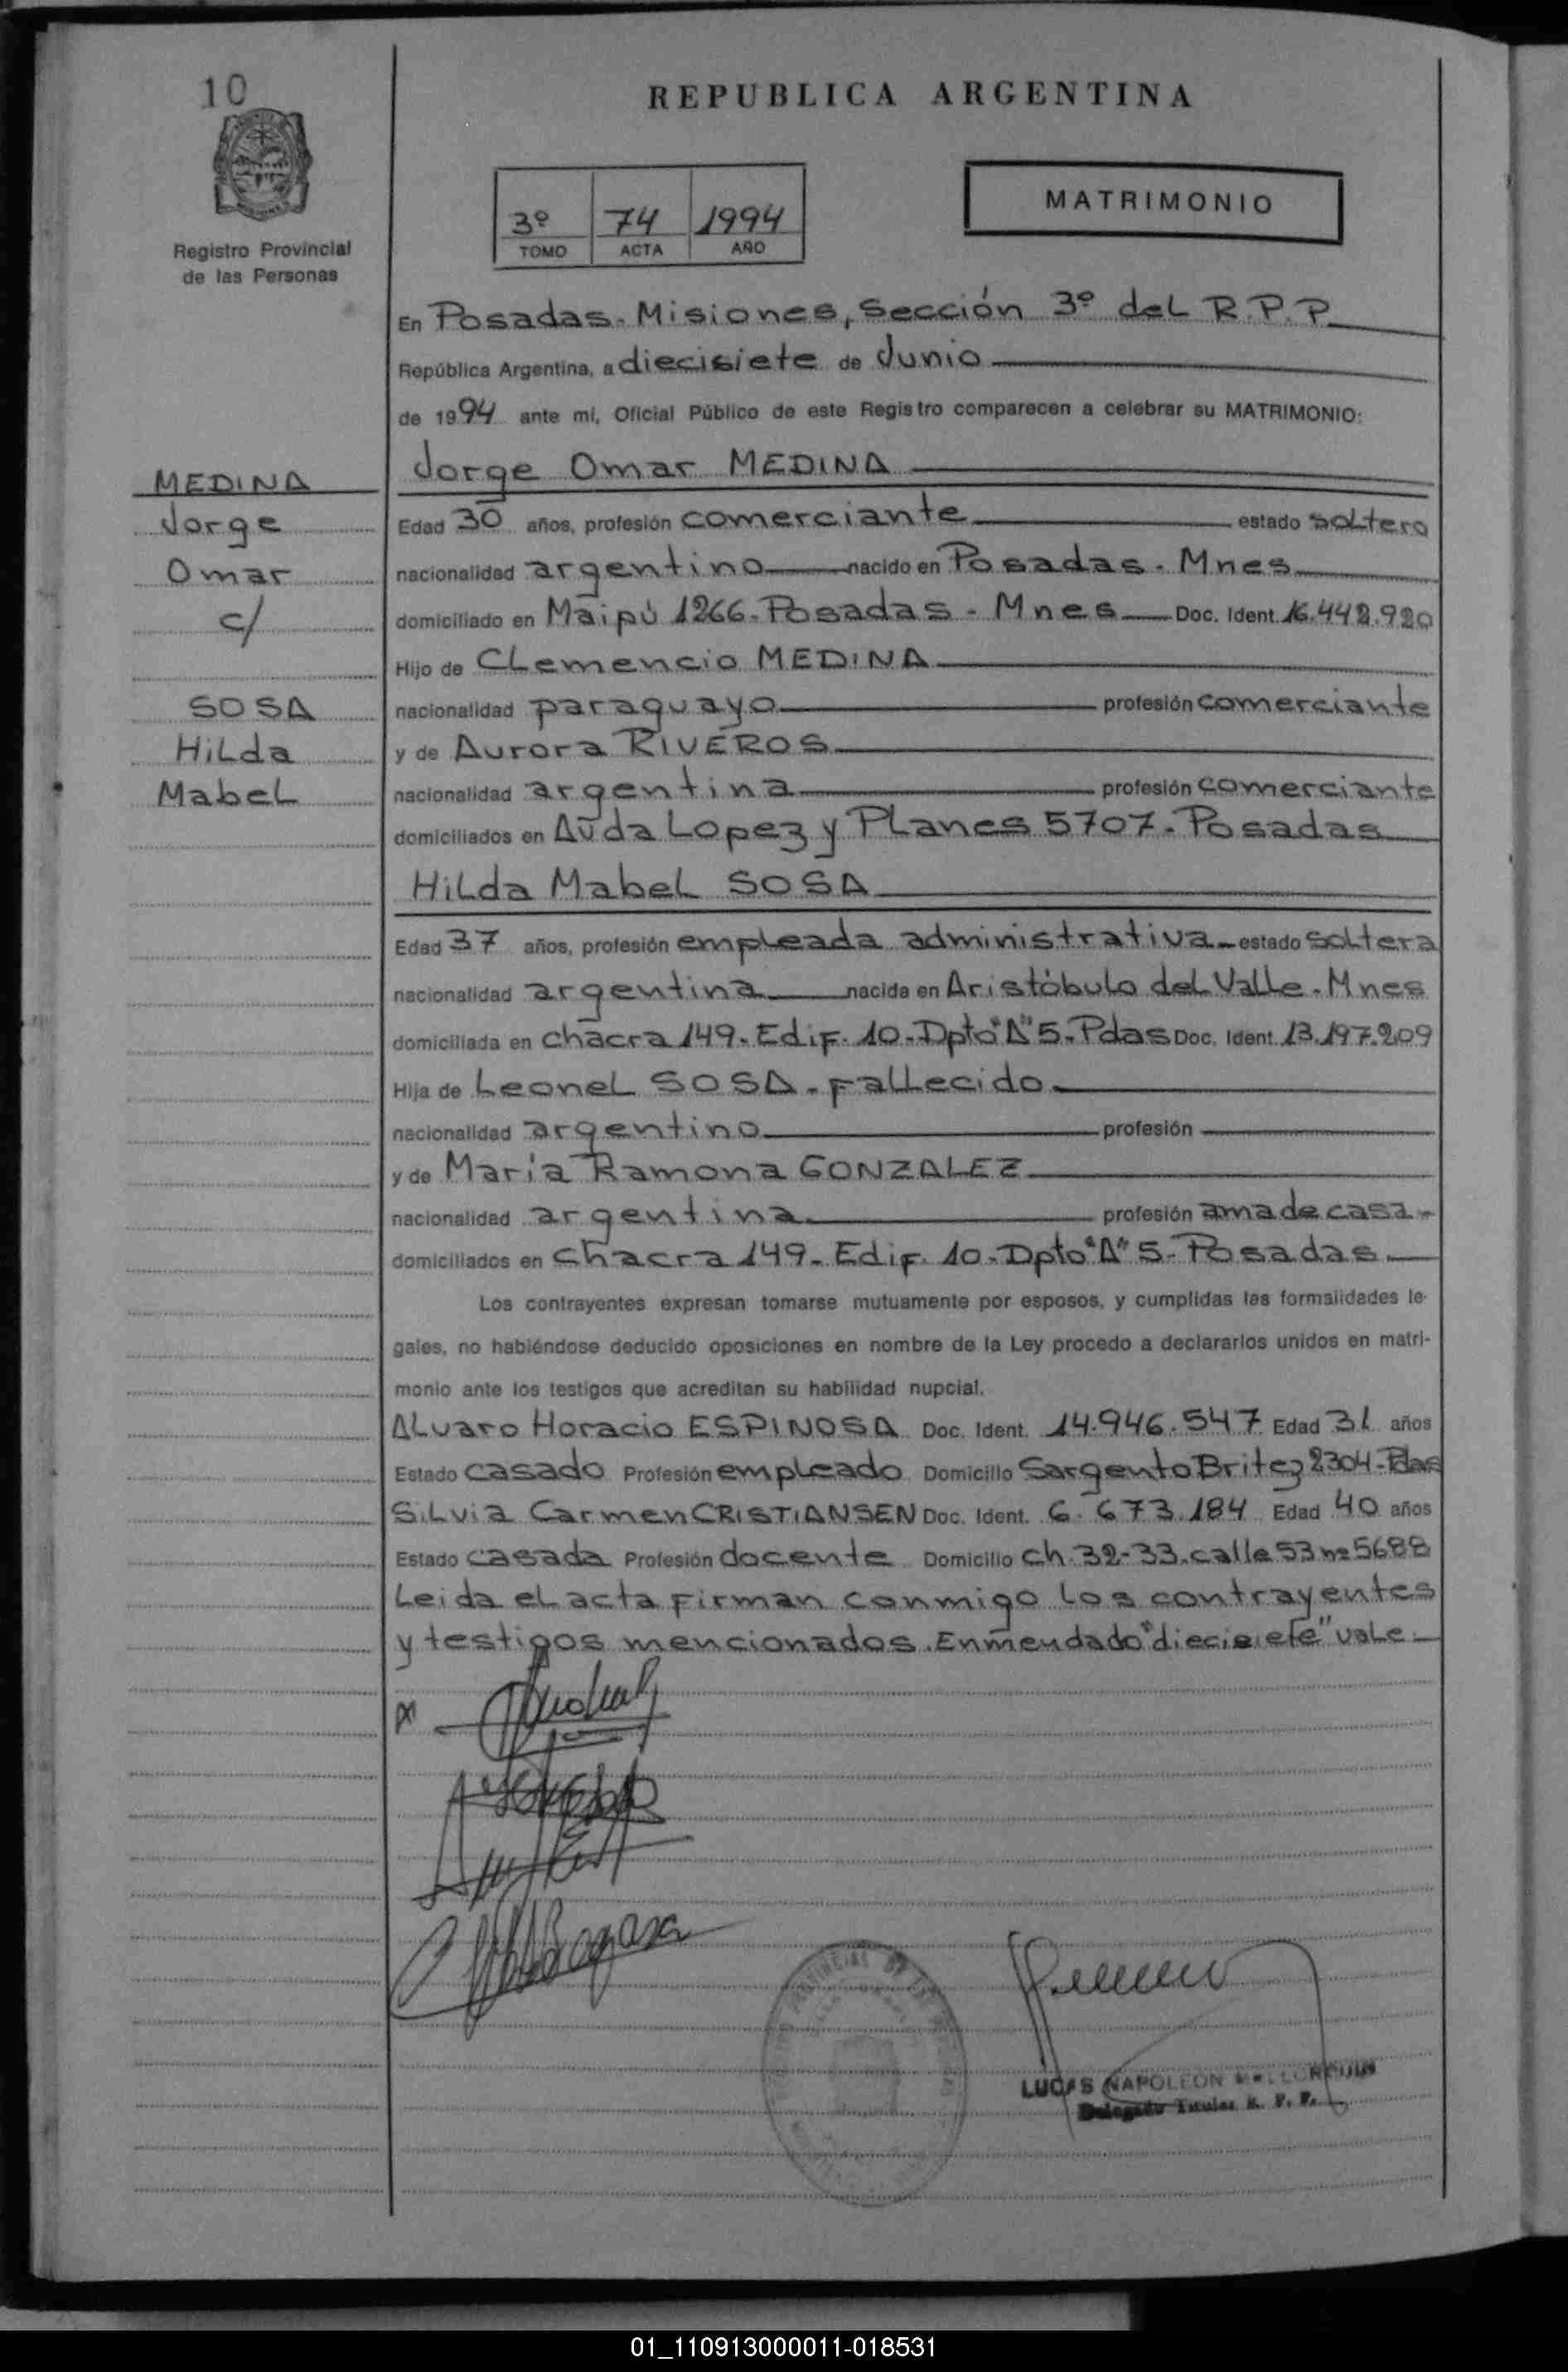 10
REPUBLICA ARGENTINA
MATRIMONIO
3º 74 1994
TOMO ACTA AÑO
Registro Provincial
de las Personas
En Posadas. Misiones, Sección 3º del R.P.P.
República Argentina, a diecisiete de Junio
de 1994 ante mi, Oficial Público de este Registro comparecen a celebrar su MATRIMONIO:
Jorge Omar MEDINA
MEDINA
Jorge
Omar
c/
SOSA
Hilda
Mabel
Edad 30 años, profesión comerciante estado soltero
nacionalidad argentino nacido en Posadas. Mnes
domiciliado en Maipú 1266-Posadas - Mnes Doc. Ident. 16.442.920
Hijo de Clemencio MEDINA
nacionalidad paraguayo profesión comerciante
y de Aurora RIVEROS
nacionalidad argentina profesión comerciante
domiciliados en Avda Lopez y Planes 5707. Posadas
Hilda Mabel SOSA
Edad 37 años, profesión empleada administrativa estado soltera
nacionalidad argentina nacida en Aristóbulo del Valle. Mnes
domiciliada en chacra 149. Edif. 10-Dpto "A" 5. Pdas Doc. Ident. 13.197.209
Hija de Leonel SOSA. fallecido
nacionalidad argentino profesión
y de María Ramona GONZALEZ
nacionalidad argentina profesión ama de casa-
domiciliados en Chacra 149. Edif. 10-Dpto "A" 5-Posadas
Los contrayentes expresan tomarse mutuamente por esposos, y cumplidas las formalidades le-
gales, no habiéndose deducido oposiciones en nombre de la Ley procedo a declararlos unidos en matri-
monio ante los testigos que acreditan su habilidad nupcial.
Alvaro Horacio ESPINOSA Doc. Ident. 14.946.547 Edad 31 años
Estado casado Profesión empleado Domicilio Sargento Britez 2304-Pdas
Silvia Carmen CRISTIANSEN Doc. Ident. 6.673.184 Edad 40 años
Estado casada Profesión docente Domicilio Ch. 32-33. calle 53 nº 5688
Leida el acta firman conmigo los contrayentes
y testigos mencionados. Enmendado "diecisiete" vale.
LUCAS NAPOLEON
Delegado Titular R. P. P.
01_110913000011-018531